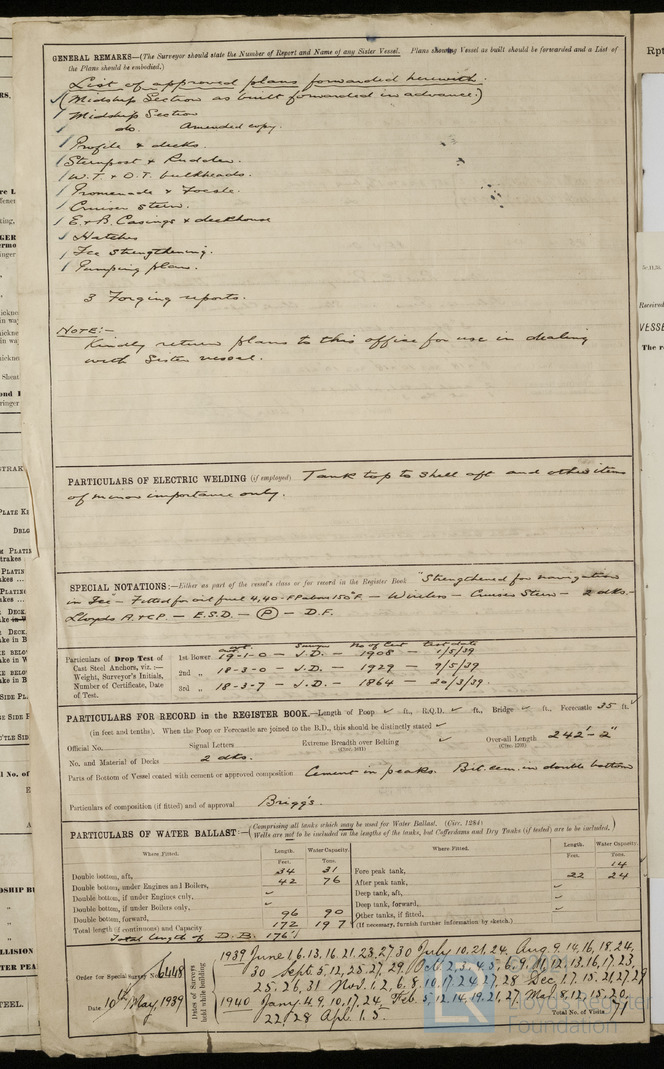 GENERAL REMARKS—(The Surveyor should state the Number of Report and Name of any Sister Vessel. Plans showing Vessel as built should be forwarded and a List of
the Plans should be embodied.)
List of approved plans forwarded herewith.
(Midship Section as built forwarded in advance.)
1 Midship Section
1 do. Amended copy.
1 Profile & decks.
1 Sternpost & Rudder.
1 W.T. & O.T. bulkheads.
1 Promenade & Focsle.
1 Cruiser Stern.
1 E. & B. Casings & deckhouse
1 Hatches
1 Ice Strengthening.
1 Pumping plan.
3 Forging reports.
NOTE:-
Kindly return plans to this office for use in dealing
with Sister vessel.
PARTICULARS OF ELECTRIC WELDING (if employed) Tank top to shell aft and other items
of minor importance only.
SPECIAL NOTATIONS:—Either as part of the vessel's class or for record in the Register Book "Strengthened for navigation
in Ice" - Fitted for oil fuel 4,40 - F.P. above 150°F. — Wireless — Cruiser Stern — 2 dks. -
Lloyds A & CP. — E.S.D. — (P) — D.F.
Particulars of Drop Test of
Cast Steel Anchors, viz. :—
Weight, Surveyor's Initials,
Number of Certificate, Date
of Test.
No of Cert test date
1st Bower 19-1-0 — J.D. — 1908 — 1/5/39
2nd „ 18-3-0 — J.D. — 1929 — 9/5/39
3rd „ 18-3-7 — J.D. — 1864 — 20/3/39.
PARTICULARS FOR RECORD in the REGISTER BOOK.—Length of Poop ✓ ft., R.Q.D. ✓ ft., Bridge ✓ ft., Forecastle 25 ft.
(in feet and tenths). When the Poop or Forecastle are joined to the B.D., this should be distinctly stated ✓
Official No. Signal Letters Extreme Breadth over Belting (Circ. 1611) ✓ Over-all Length (Circ. 1703) 242'-2"
No. and Material of Decks 2 dks.
Parts of Bottom of Vessel coated with cement or approved composition Cement in peaks. Bit. cem. in double bottom
Particulars of composition (if fitted) and of approval Brigg's.
PARTICULARS OF WATER BALLAST:—(Comprising all tanks which may be used for Water Ballast. (Circ. 1284)
Wells are not to be included in the lengths of the tanks, but Cofferdams and Dry Tanks (if tested) are to be included.)
Where Fitted. Length. Water Capacity. Where Fitted. Length. Water Capacity.
Feet. Tons. Feet. Tons.
Double bottom, aft, 34 31 Fore peak tank, 14
Double bottom, under Engines and Boilers, 42 76 After peak tank, 22 24
Double bottom, if under Engines only, ✓ Deep tank, aft, ✓
Double bottom, if under Boilers only, ✓ Deep tank, forward, ✓
Double bottom, forward, 96 90 Other tanks, if fitted, ✓
Total length (if continuous) and Capacity 172 197 (If necessary, furnish further information by sketch.)
Total length of D.B. 176'
Order for Special Survey No. 6448
Date 10th May, 1939
Dates of Surveys held while building
1939 June 1, 6, 13, 16, 21, 23, 27, 30 July 10, 21, 24, Aug. 9, 14, 16, 18, 24,
30 Sept. 5, 12, 25, 27, 29. Oct. 2, 3, 4, 5, 6, 9, 11, 12, 13, 16, 17, 23,
25, 26, 31 Nov. 1, 2, 6, 8, 10, 17, 24, 27, 28 Dec. 1, 7, 15, 21, 27, 29
1940 Jany. 4, 9, 10, 17, 24, Feb. 5, 12, 14, 19, 21, 27 Mar. 8, 12, 15, 20,
22, 28 Apl. 1, 5.
Total No. of Visits 71
Lloyd's Register
Foundation